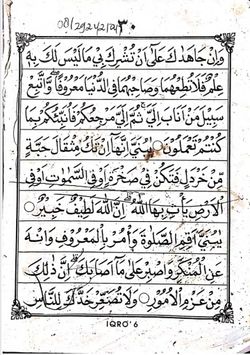 وَاِنْ جَاهَدٰكَ عَلٰٓى اَنْ تُشْرِكَ فِيْ مَا لَيْسَ لَكَ بِهٖ
عِلْمٌ فَلَا تُطِعْهُمَا وَصَاحِبْهُمَا فِى الدُّنْيَا مَعْرُوْفًا وَّاتَّبِعْ
سَبِيْلَ مَنْ اَنَابَ اِلَيَّ ثُمَّ اِلَيَّ مَرْجِعُكُمْ فَاُنَبِّئُكُمْ بِمَا
كُنْتُمْ تَعْمَلُوْنَ ○ يٰبُنَيَّ اِنَّهَآ اِنْ تَكُ مِثْقَالَ حَبَّةٍ
مِّنْ خَرْدَلٍ فَتَكُنْ فِيْ صَخْرَةٍ اَوْ فِى السَّمٰوٰتِ اَوْ فِى
الْاَرْضِ يَأْتِ بِهَا اللّٰهُ اِنَّ اللّٰهَ لَطِيْفٌ خَبِيْرٌ ○
يٰبُنَيَّ اَقِمِ الصَّلٰوةَ وَأْمُرْ بِالْمَعْرُوْفِ وَانْهَ
عَنِ الْمُنْكَرِ وَاصْبِرْ عَلٰى مَآ اَصَابَكَ اِنَّ ذٰلِكَ
مِنْ عَزْمِ الْاُمُوْرِ ○ وَلَا تُصَعِّرْ خَدَّكَ لِلنَّاسِ
IQRO' 6